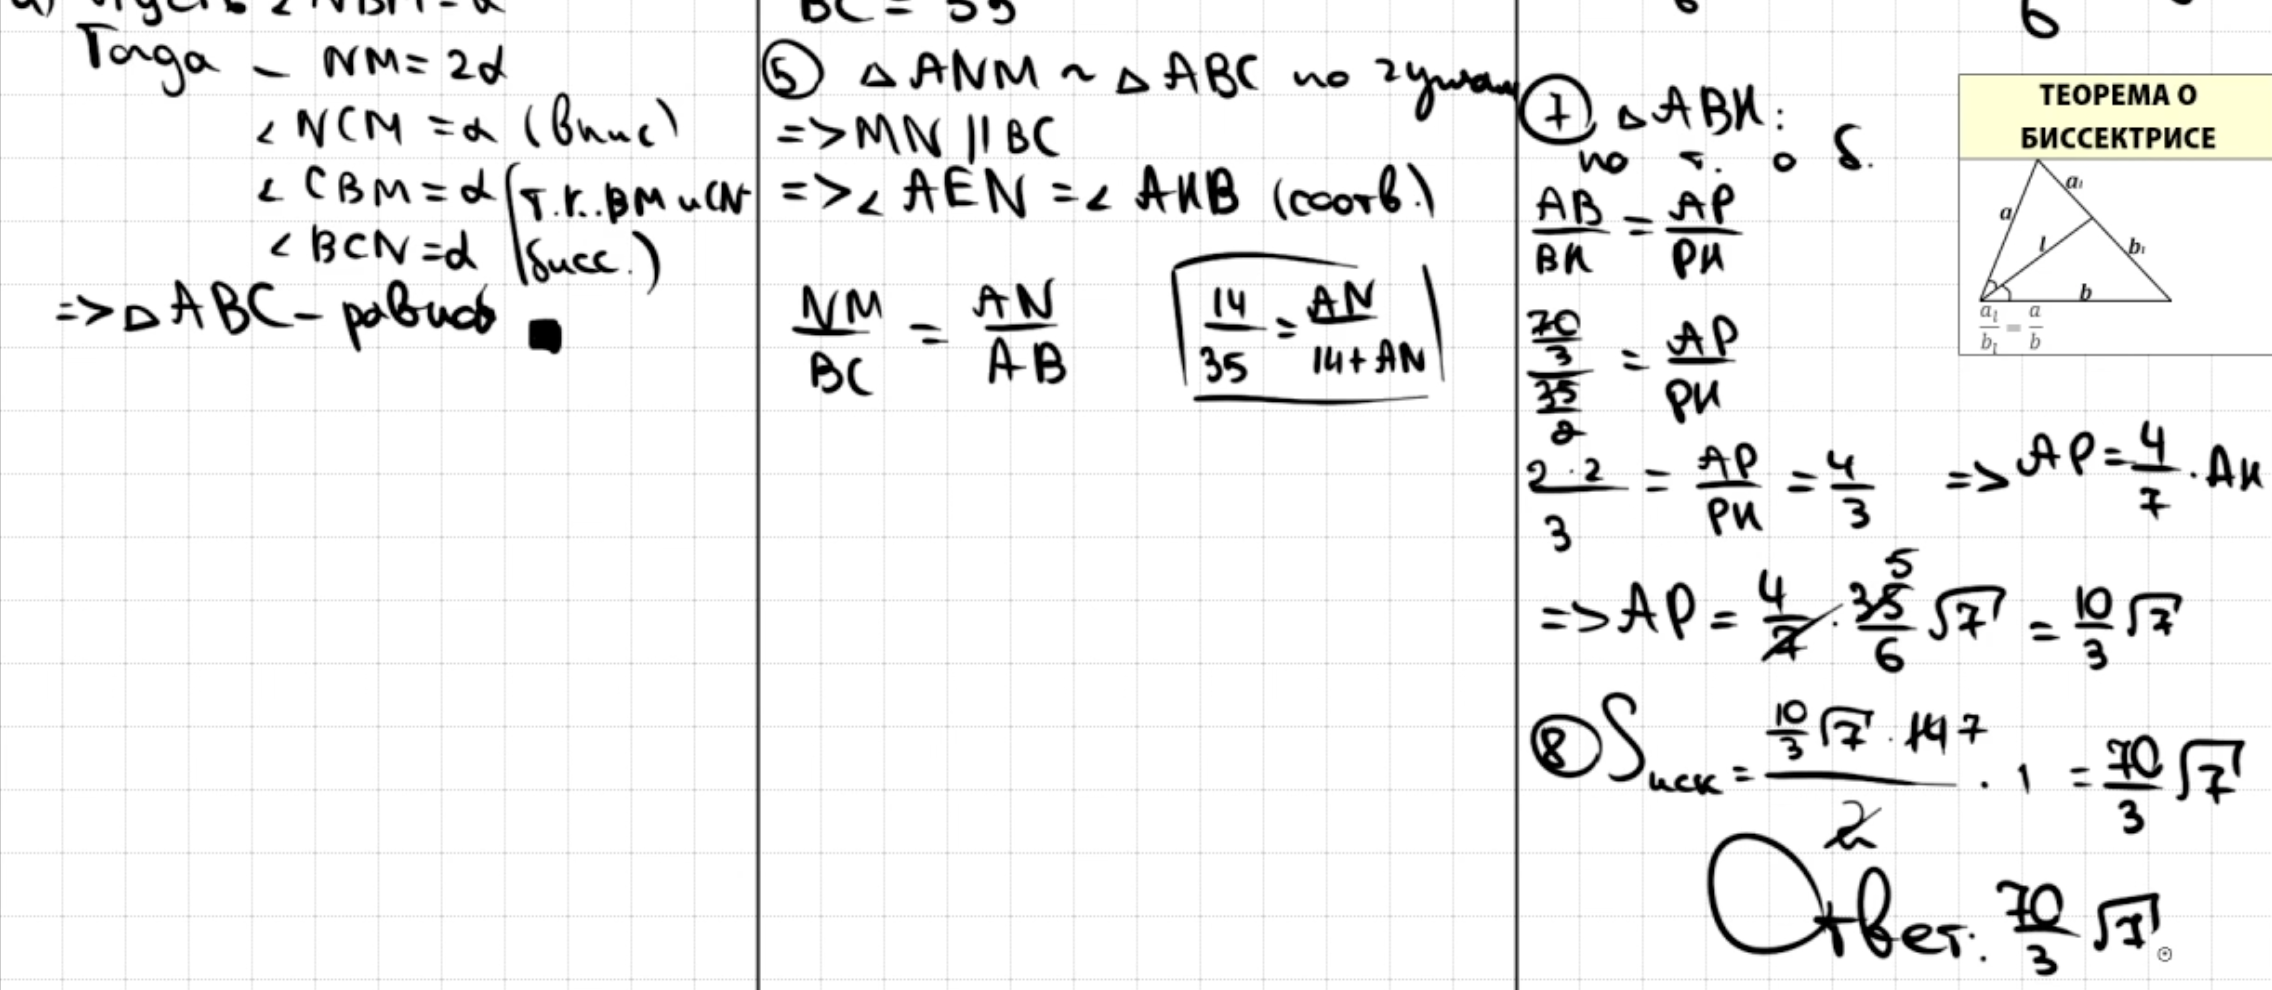 Тогда ◡ NM = 2α
∠ NCM = α (впис)
∠ CBM = α (т.к. BM и CN
∠ BCN = α бисс.)
=> △ ABC - равноб ■
BC = 35
⑤ △ ANM ~ △ ABC по 2 углам
=> MN || BC
=> ∠ AEN = ∠ AKB (соотв.)
NM/BC = AN/AB 14/35 = AN/(14 + AN)
6
⑦ △ ABK:
по т. о б.
AB/BK = AP/PK
(70/3)/(35/2) = AP/PK
(2·2)/3 = AP/PK = 4/3 => AP = 4/7 · AK
=> AP = 4/7 · 35/6 √7 = 10/3 √7
5
⑧ Sиск = (10/3 √7 · 14 7)/2 · 1 = 70/3 √7
Ответ: 70/3 √7
ТЕОРЕМА О
БИССЕКТРИСЕ
a₁
a
l
b₁
b
a₁/b₁ = a/b